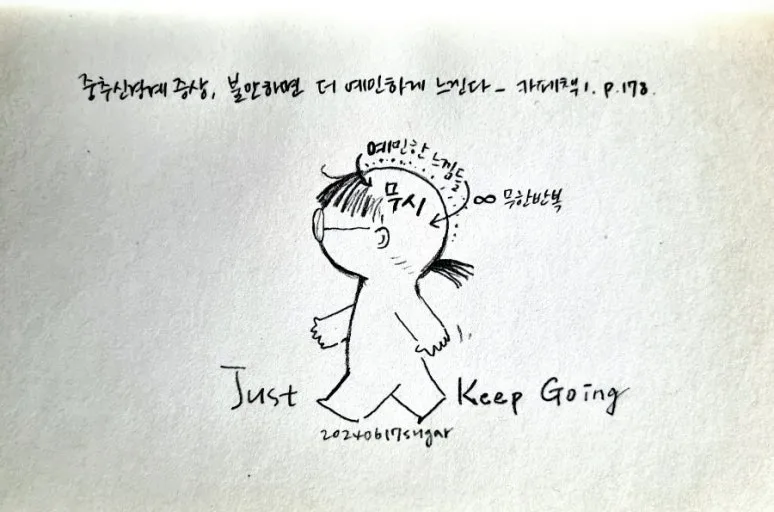 중추신경계 증상, 불안하면 더 예민하게 느낀다 - 카페책1. p.178.
예민한 느낌들
무시
∞ 무한반복
Just Keep Going
20240617sugar